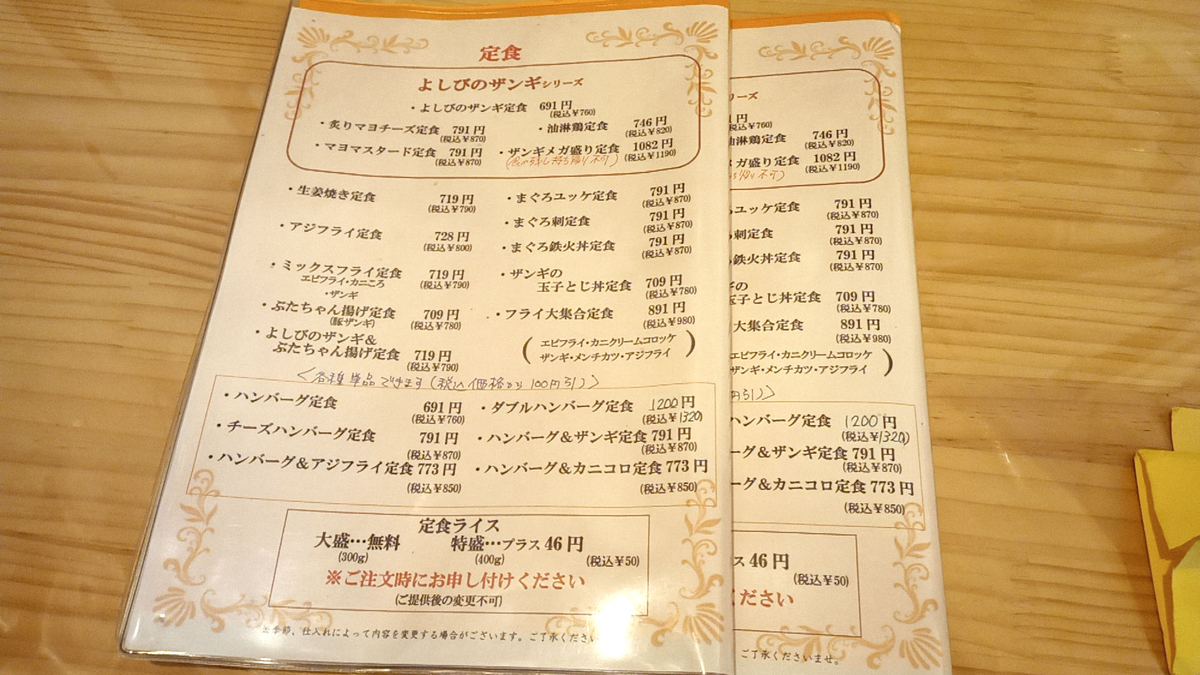 定食
よしびのザンギシリーズ
・よしびのザンギ定食 691円
(税込¥760)
・炙りマヨチーズ定食 791円
(税込¥870)
・油淋鶏定食 746円
(税込¥820)
・マヨマスタード定食 791円
(税込¥870)
・ザンギメガ盛り定食 1082円
(税込¥1190)
持ち帰り不可)
・生姜焼き定食 719円
(税込¥790)
・まぐろユッケ定食 791円
(税込¥870)
・まぐろ刺定食 791円
(税込¥870)
・アジフライ定食 728円
(税込¥800)
・まぐろ鉄火丼定食 791円
(税込¥870)
・ミックスフライ定食 719円
エビフライ・カニころ (税込¥790)
・ザンギ
・ザンギの
玉子とじ丼定食 709円
(税込¥780)
・ぶたちゃん揚げ定食 709円
(豚ザンギ) (税込¥780)
・フライ大集合定食 891円
(税込¥980)
(エビフライ・カニクリームコロッケ
ザンギ・メンチカツ・アジフライ)
・よしびのザンギ&
ぶたちゃん揚げ定食 719円
(税込¥790)
<各種単品できます(税込価格から100円引)>
・ハンバーグ定食 691円
(税込¥760)
・ダブルハンバーグ定食 1200円
(税込¥1320)
・チーズハンバーグ定食 791円
(税込¥870)
・ハンバーグ&ザンギ定食 791円
(税込¥870)
・ハンバーグ&アジフライ定食 773円
(税込¥850)
・ハンバーグ&カニコロ定食 773円
(税込¥850)
定食ライス
大盛…無料 特盛…プラス46円
(300g) (400g) (税込¥50)
※ご注文時にお申し付けください
(ご提供後の変更不可)
季節、仕入れによって内容を変更する場合がございます。ご了承くださ
リーズ
1円
(税込¥760)
油淋鶏定食 746円
(税込¥820)
メガ盛り定食 1082円
(税込¥1190)
不可)
ユッケ定食 791円
(税込¥870)
刺定食 791円
(税込¥870)
鉄火丼定食 791円
(税込¥870)
ギの
玉子とじ丼定食 709円
(税込¥780)
大集合定食 891円
(税込¥980)
エビフライ・カニクリームコロッケ
ザンギ・メンチカツ・アジフライ)
円引)>
ハンバーグ定食 1200円
(税込¥1320)
ーグ&ザンギ定食 791円
(税込¥870)
ーグ&カニコロ定食 773円
(税込¥850)
ラス46円
(税込¥50)
ください
ご了承くださいませ。